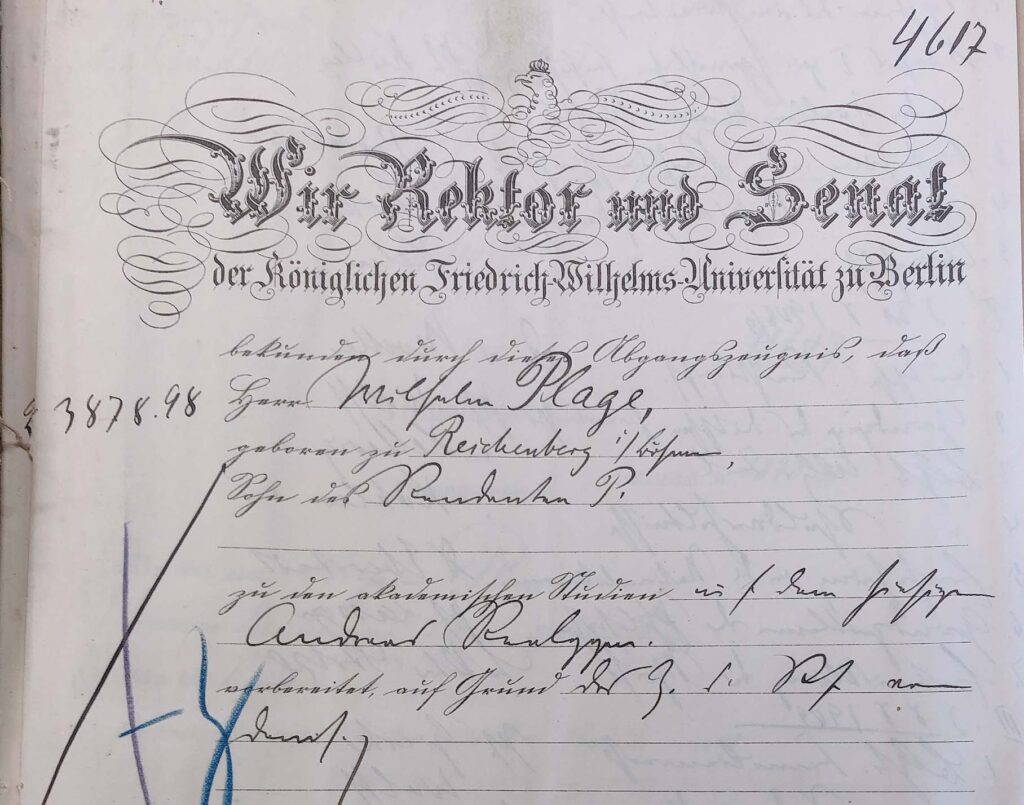 4617
Wir Rektor und Senat
der Königlichen Friedrich-Wilhelms-Universität zu Berlin
bekunden durch dieses Abgangszeugnis, daß
3878.98 Herr Wilhelm Plage,
geboren zu Reichenberg i/Böhmen,
Sohn des Rendanten P.
zu den akademischen Studien auf dem hiesigen
Andreas Realgym.
vorbereitet, auf Grund des Z. d. Rf. von